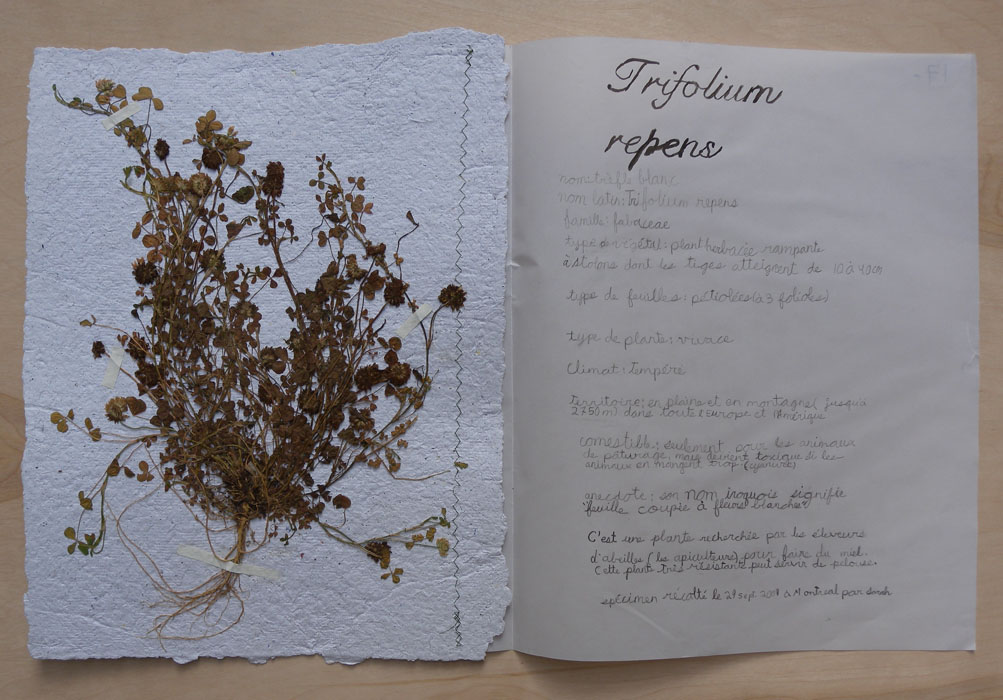 F1
Trifolium
repens
nom: trèfle blanc
nom latin: Trifolium repens
famille: fabaseae
type de végétal: plant herbacée rampante
à stolons dont les tiges atteignent de 10 à 40cm
type de feuilles: pétiolées (à 3 folioles)
type de plante: vivace
climat: tempéré
territoire: en plaine et en montagne (jusqu'à
2750m) dans toute l'Europe et l'Amérique
comestible: seulement pour les animaux
de pâturage, mais devient toxique si les
animaux en mangent trop (cyanure)
anecdote: son nom iroquois signifie
feuille coupée à fleurs blanches
C'est une plante recherchée par les éleveurs
d'abeilles (les apiculteurs) pour faire du miel.
Cette plante très résistante peut servir de pelouse.
spécimen récolté le sept. à Montréal par